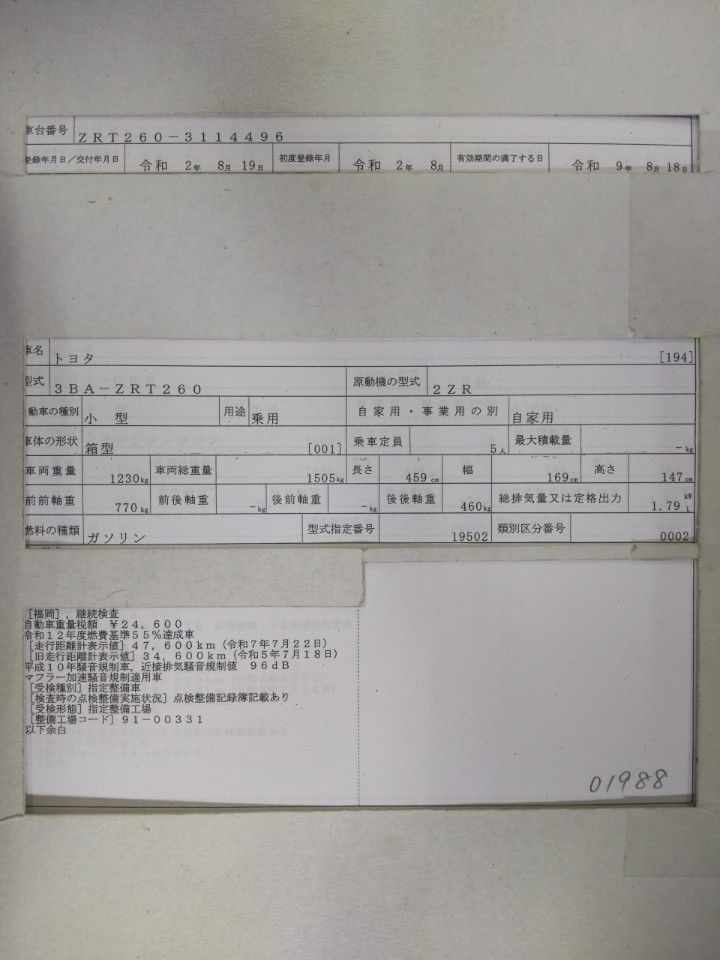 車台番号 ZRT260-3114496
登録年月日/交付年月日 令和 2年 8月 19日 初度登録年月 令和 2年 8月 有効期間の満了する日 令和 9年 8月 18日
車名 トヨタ [194]
型式 3BA-ZRT260 原動機の型式 2ZR
動車の種別 小 型 用途 乗用 自家用・事業用の別 自家用
車体の形状 箱型 [001] 乗車定員 5人 最大積載量 -kg
車両重量 1230kg 車両総重量 1505kg 長さ 459cm 幅 169cm 高さ 147cm
前前軸重 770kg 前後軸重 -kg 後前軸重 -kg 後後軸重 460kg 総排気量又は定格出力 1.79 kW L
燃料の種類 ガソリン 型式指定番号 19502 類別区分番号 0002
[福岡],継続検査
自動車重量税額 ¥24,600
令和12年度燃費基準55%達成車
[走行距離計表示値]47,600km(令和7年7月22日)
[旧走行距離計表示値]34,600km(令和5年7月18日)
平成10年騒音規制車,近接排気騒音規制値 96dB
マフラー加速騒音規制適用車
[受検種別]指定整備車
[検査時の点検整備実施状況]点検整備記録簿記載あり
[受検形態]指定整備工場
[整備工場コード]91-00331
以下余白
01988